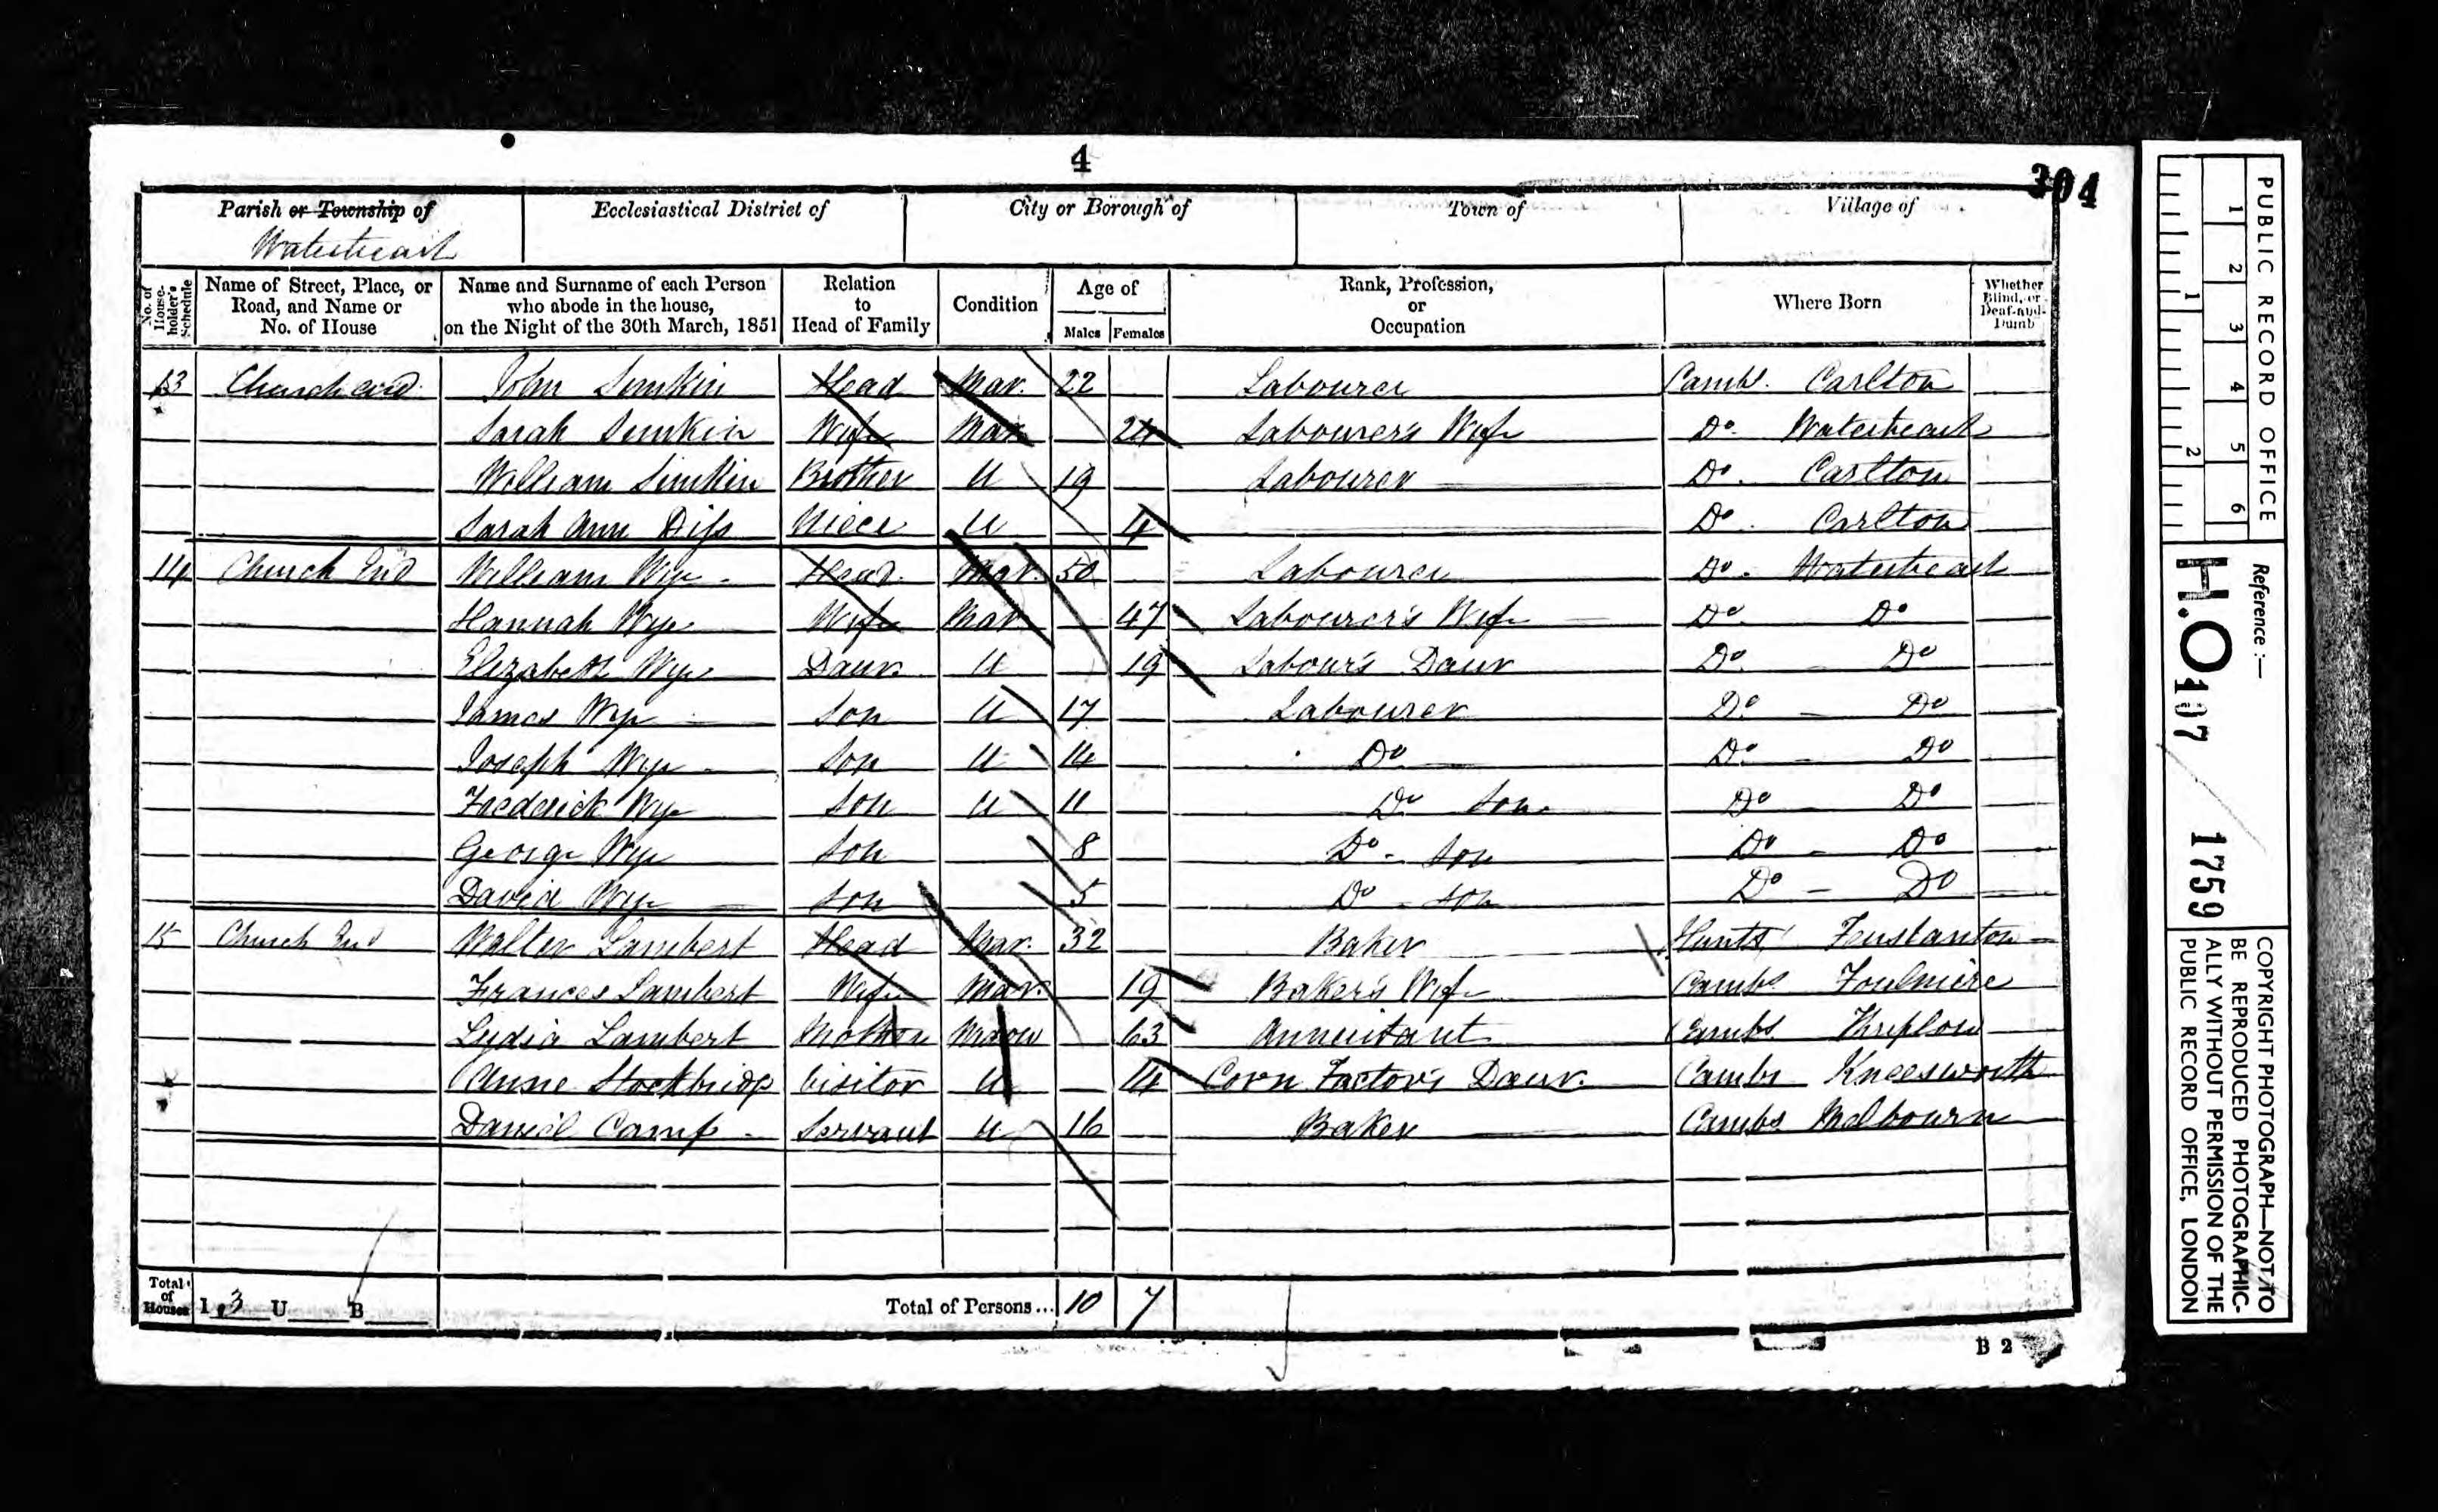 4
304
Parish or Township of
Waterbeach
Ecclesiastical District of
City or Borough of
Town of
Village of
No. of House-holder's Schedule
Name of Street, Place, or Road, and Name or No. of House
Name and Surname of each Person who abode in the house, on the Night of the 30th March, 1851
Relation to Head of Family
Condition
Age of
Males Females
Rank, Profession, or Occupation
Where Born
Whether Blind, or Deaf-and-Dumb
13 Church end John Simkin Head Mar. 22 Labourer Cambs. Carlton
Sarah Simkin Wife Mar 24 Labourer's Wife Do. Waterbeach
William Simkin Brother U 19 Labourer Do. Carlton
Sarah Ann Diss Niece U 4 Do. Carlton
14 Church End William Wye Head Mar. 50 Labourer Do. Waterbeach
Hannah Wye Wife Mar 47 Labourer's Wife Do. Do
Elizabeth Wye Daur. U 19 Labour's Daur Do. Do
James Wye Son U 17 Labourer Do. Do
Joseph Wye Son U 14 Do Do. Do
Frederick Wye Son U 11 Do Son. Do Do
George Wye Son 8 Do - Son Do Do
David Wye Son 5 Do - Son Do Do
15 Church End Walter Lambert Head Mar. 32 Baker Hunts Fenstanton
Frances Lambert Wife Mar. 19 Baker's Wife Cambs Foulmire
Lydia Lambert Mother Widow 63 Annuitant Cambs. Thriplow
Anne Stockbridge Visitor U 14 Corn Factor's Daur. Cambs Kneesworth
Daniel Camp Servant U 16 Baker Cambs Melbourn
Total of Houses I 3 U B Total of Persons... 10 7
B 2
PUBLIC RECORD OFFICE
1 2 3 4 5 6
1 2
Reference:—
H.O. 107 / 1759
COPYRIGHT PHOTOGRAPH—NOT TO BE REPRODUCED PHOTOGRAPHICALLY WITHOUT PERMISSION OF THE PUBLIC RECORD OFFICE, LONDON